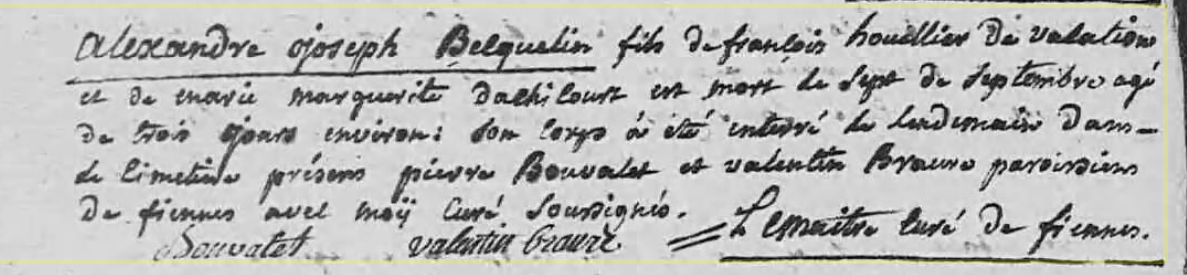 alexandre ojoseph Becquelin fils de françois houillier de valation
et de marie marguerite Dachicourt est mort le sept de septembre agé
de trois ojours environ: son corps à été enterré le lendemain dans
le cimetiere présens pierre Bouvalet et valentin Braure paroissiens
de fiennes avec moÿ curé soussigné.
Bouvalet valentin braure Lemaitre curé de fiennes.